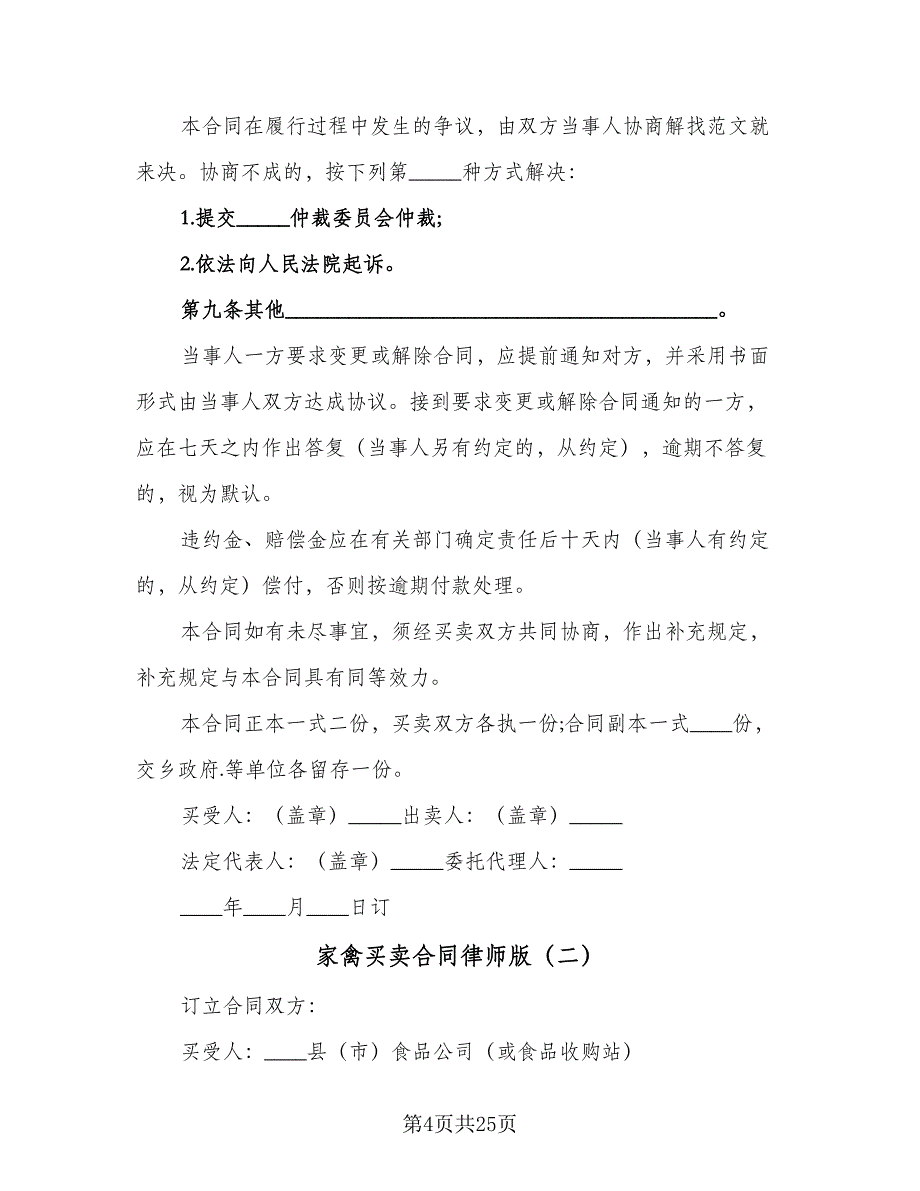 本合同在履行过程中发生的争议，由双方当事人协商解找范文就
来决。协商不成的，按下列第_____种方式解决：
1.提交_____仲裁委员会仲裁;
2.依法向人民法院起诉。
第九条其他_________________________________________。
当事人一方要求变更或解除合同，应提前通知对方，并采用书面
形式由当事人双方达成协议。接到要求变更或解除合同通知的一方，
应在七天之内作出答复（当事人另有约定的，从约定），逾期不答复
的，视为默认。
违约金、赔偿金应在有关部门确定责任后十天内（当事人有约定
的，从约定）偿付，否则按逾期付款处理。
本合同如有未尽事宜，须经买卖双方共同协商，作出补充规定，
补充规定与本合同具有同等效力。
本合同正本一式二份，买卖双方各执一份;合同副本一式____份，
交乡政府.等单位各留存一份。
买受人：（盖章）_____出卖人：（盖章）_____
法定代表人：（盖章）_____委托代理人：_____
____年____月____日订
家禽买卖合同律师版（二）
订立合同双方：
买受人：____县（市）食品公司（或食品收购站）
第4页共25页